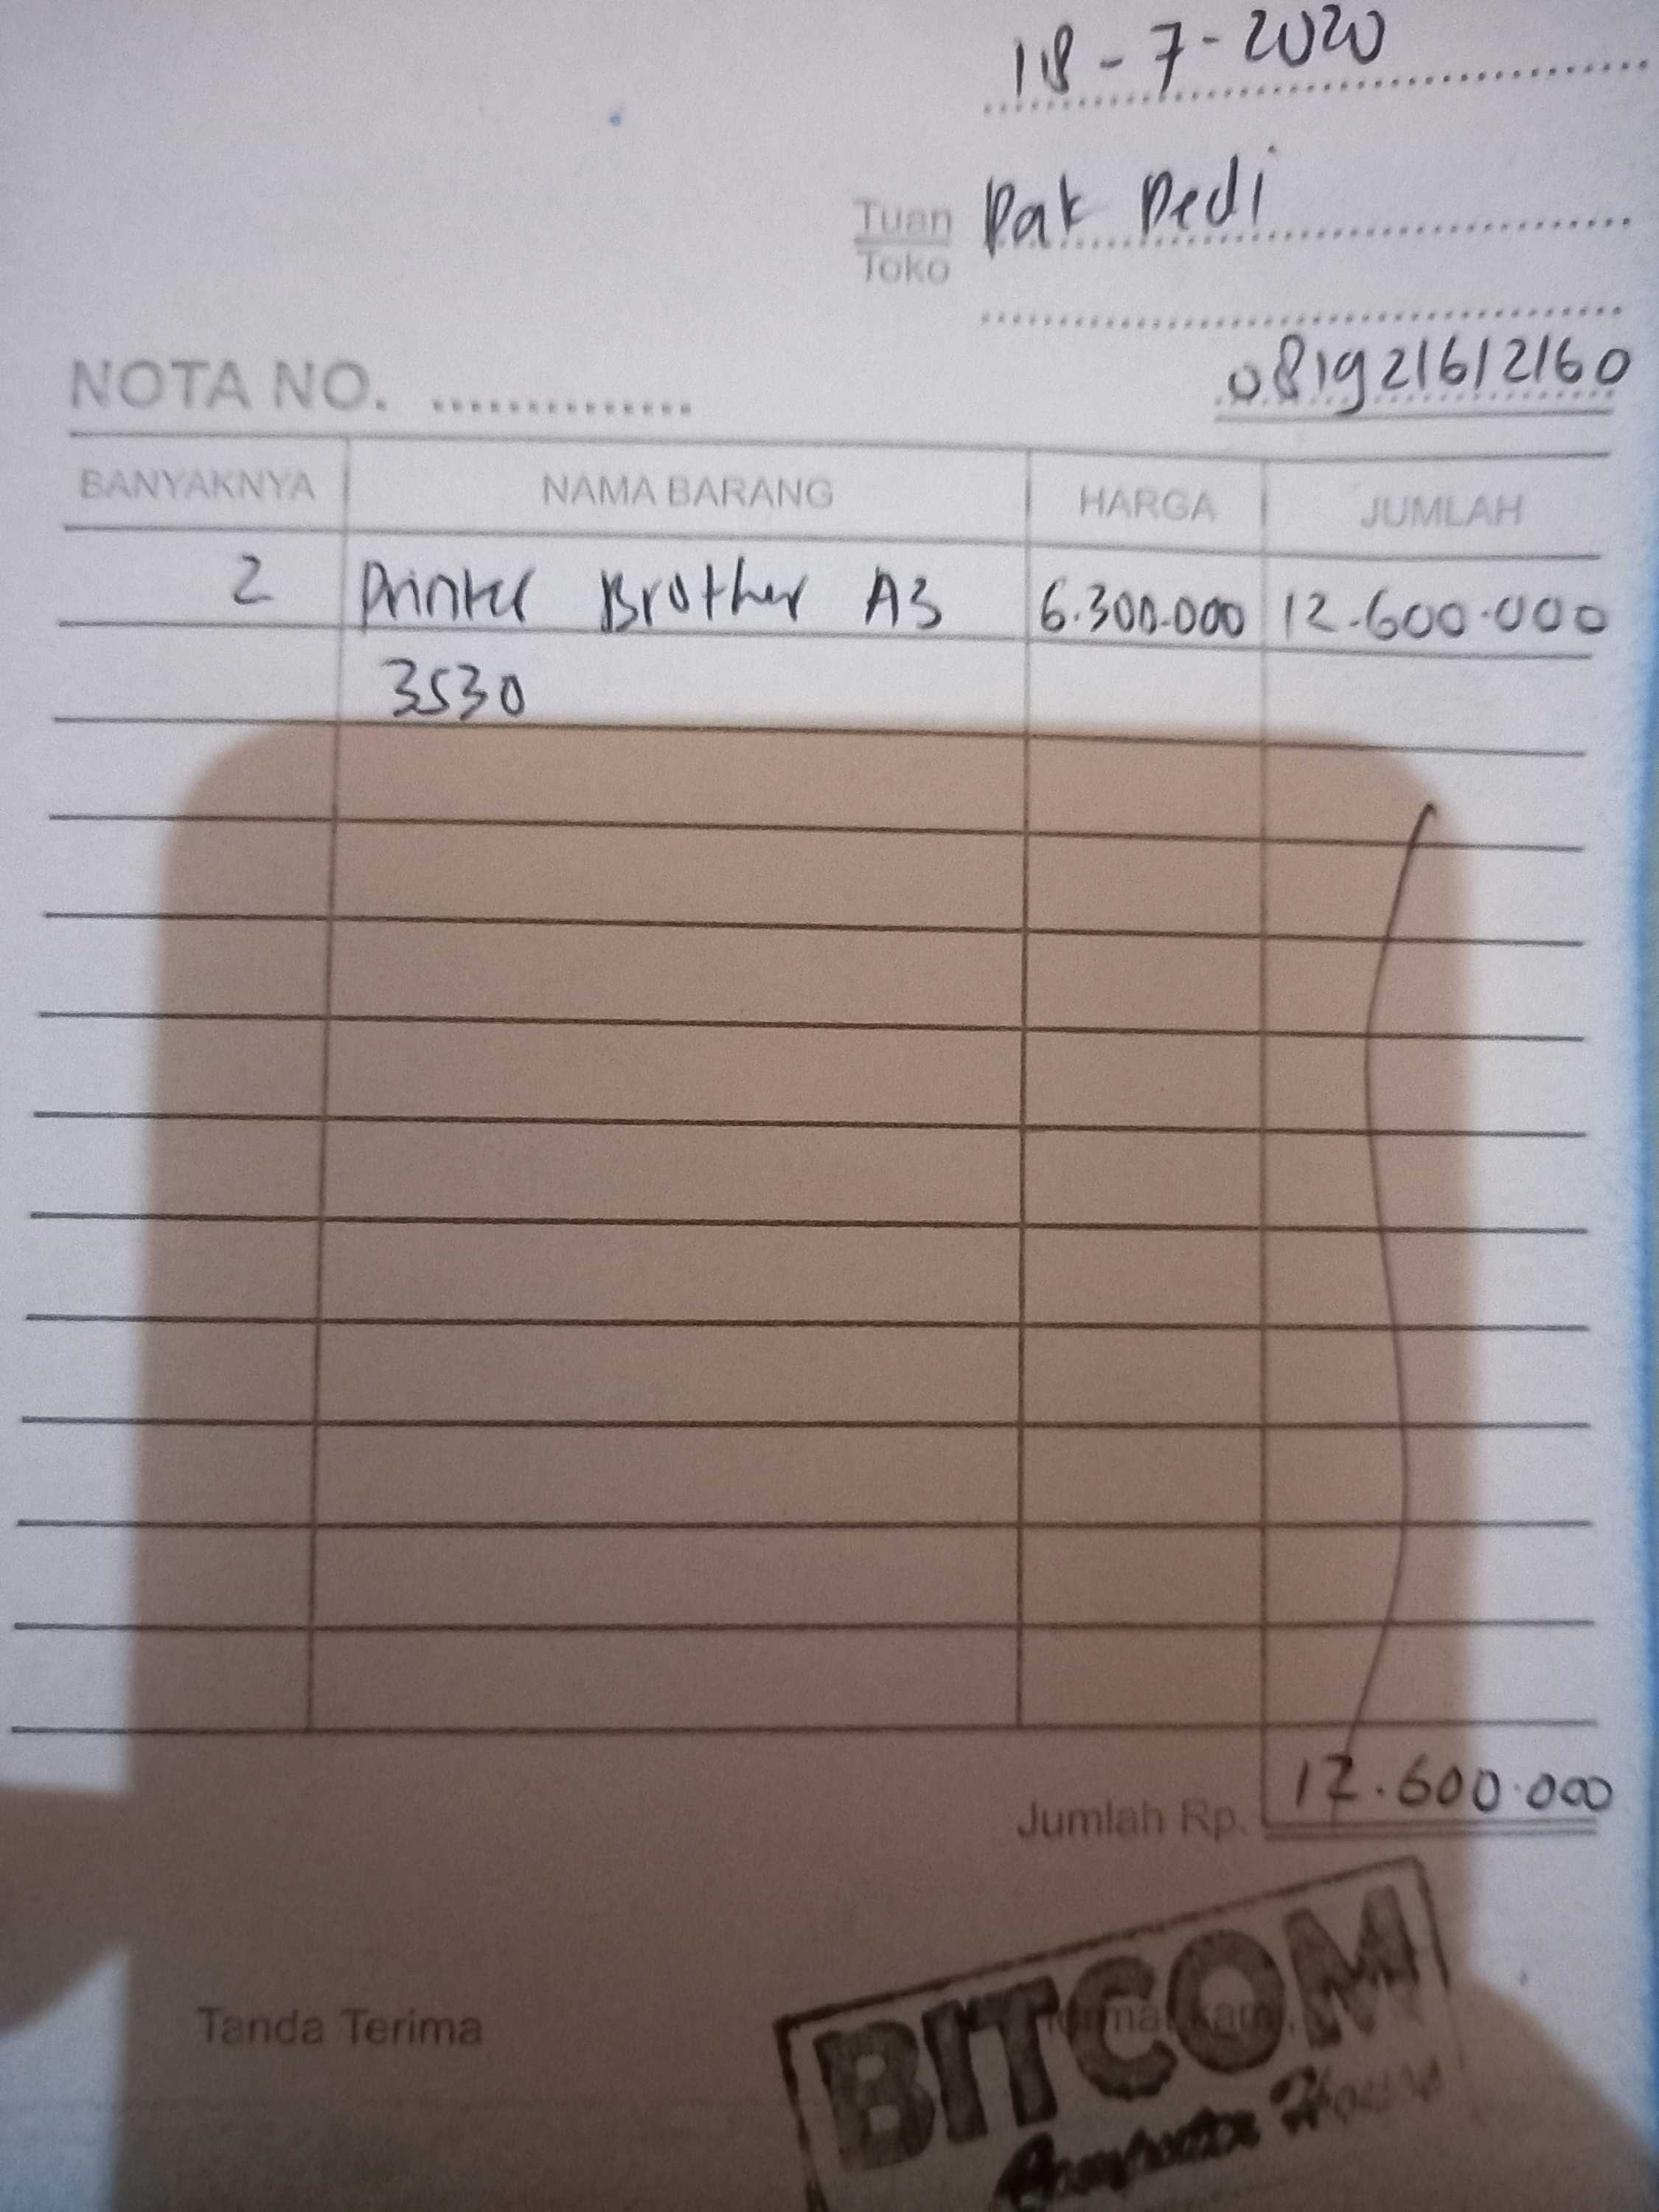 18 - 7 - 2020
Tuan Pak Dedi
Toko
081921612160
NOTA NO. ...............
BANYAKNYA NAMA BARANG HARGA JUMLAH
2 Printer Brother A3 6.300.000 12.600.000
3530
Jumlah Rp. 12.600.000
Tanda Terima
BITCOM